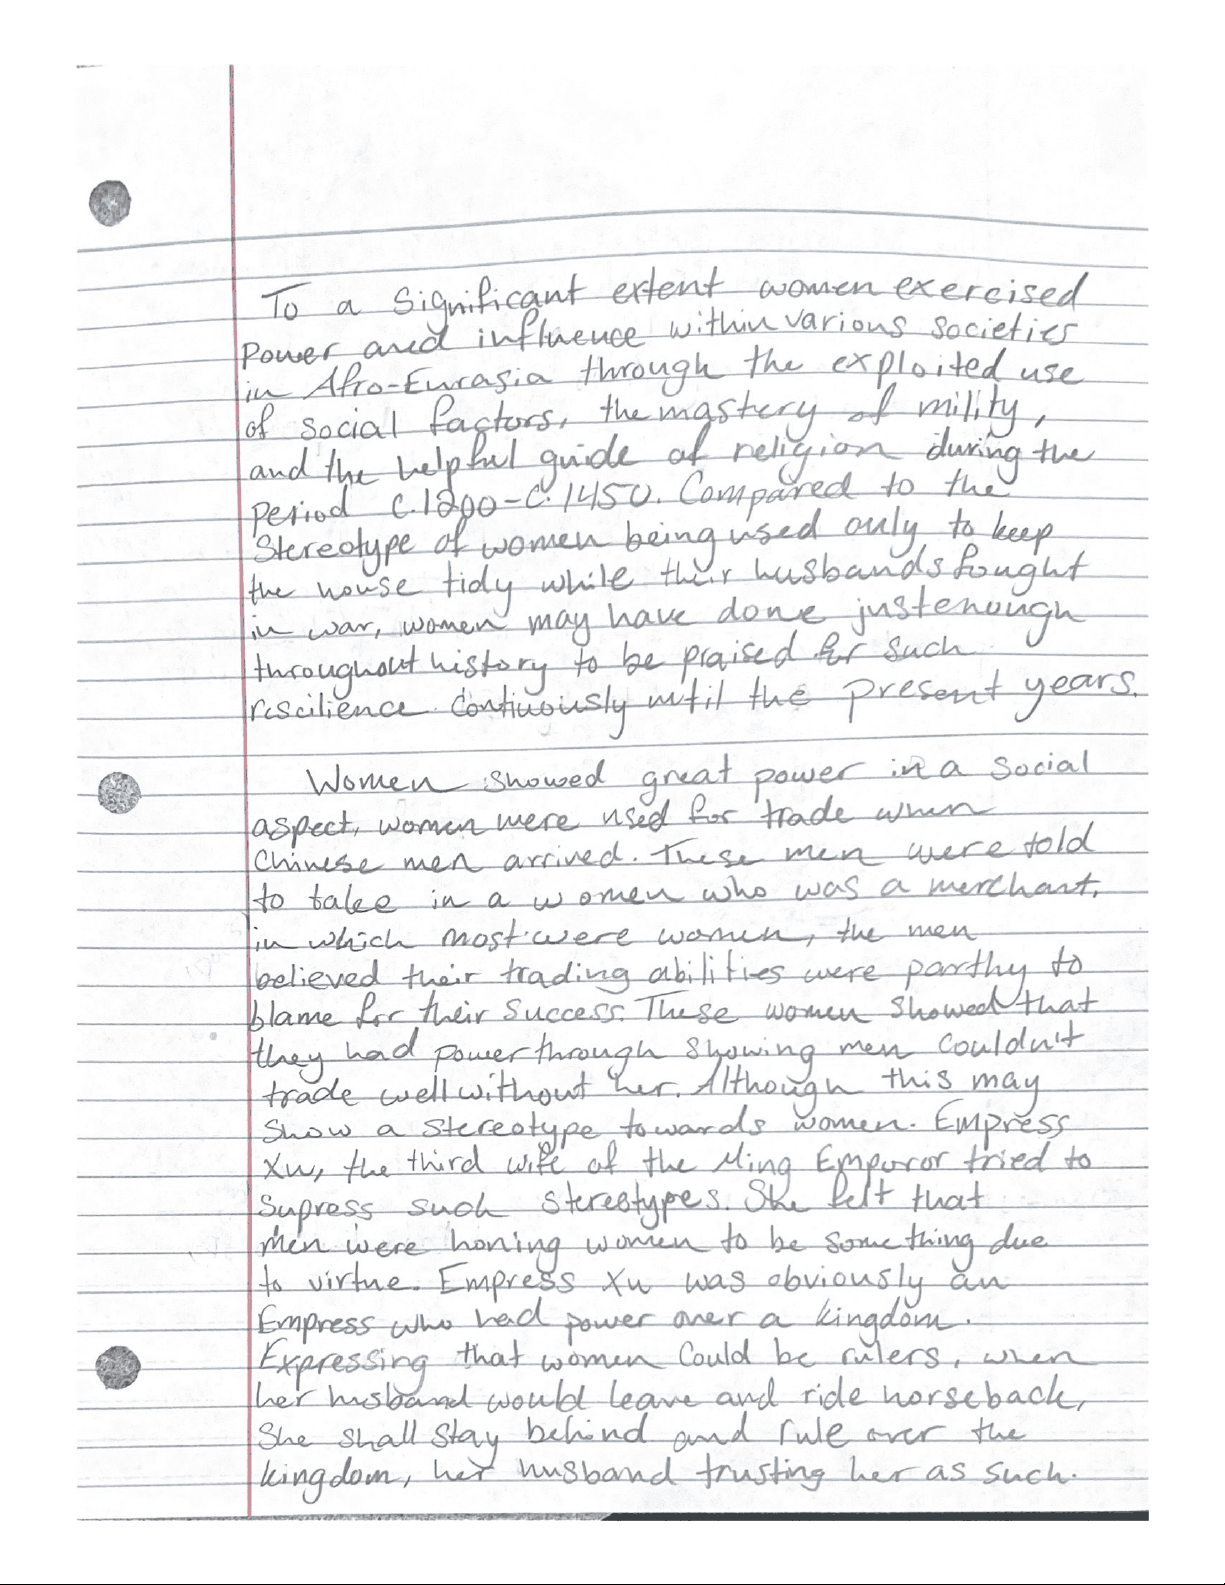 To a significant extent women exercised
power and influence within various societies
in Afro-Eurasia through the exploited use
of social factors, the mastery of mility,
and the helpful guide of religion during the
period c.1200-c.1450. Compared to the
stereotype of women being used only to keep
the house tidy while their husbands fought
in war, women may have done just enough
throughout history to be praised for such
rescilience continuously until the present years.
Women showed great power in a social
aspect, women were used for trade when
Chinese men arrived. These men were told
to take in a women who was a merchant,
in which most were women, the men
believed their trading abilities were parthy to
blame for their success. These women showed that
they had power through showing men couldn't
trade well without her. Although this may
show a stereotype towards women. Empress
Xu, the third wife of the Ming Emperor tried to
supress such stereotypes. She felt that
men were honing women to be something due
to virtue. Empress Xu was obviously an
Empress who had power over a kingdom.
Expressing that women could be rulers, when
her husband would leave and ride horseback,
she shall stay behind and rule over the
kingdom, her husband trusting her as such.